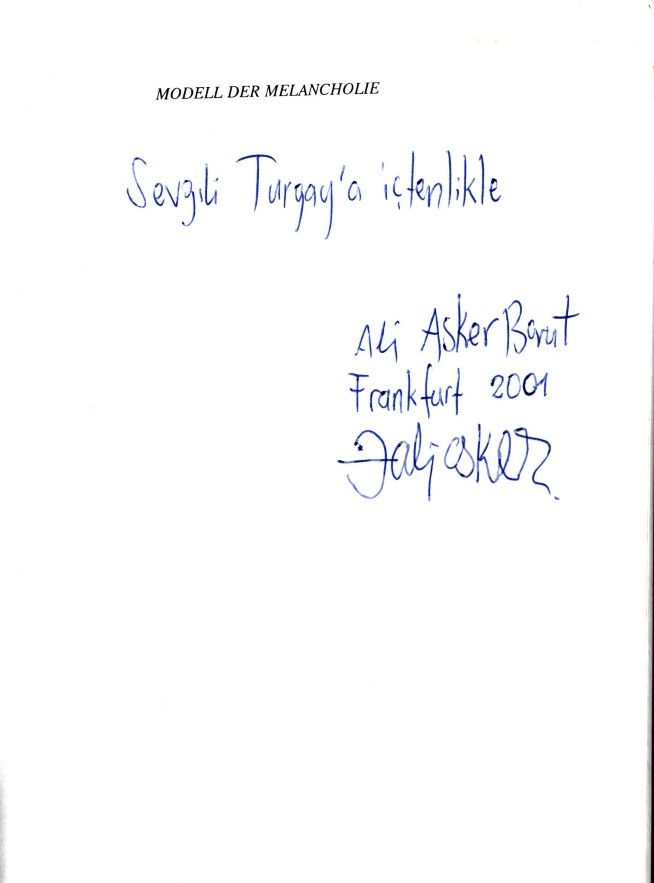 MODELL DER MELANCHOLIE
Sevgili Turgay'a içtenlikle
Ali Asker Barut
Frankfurt 2001
aliasker